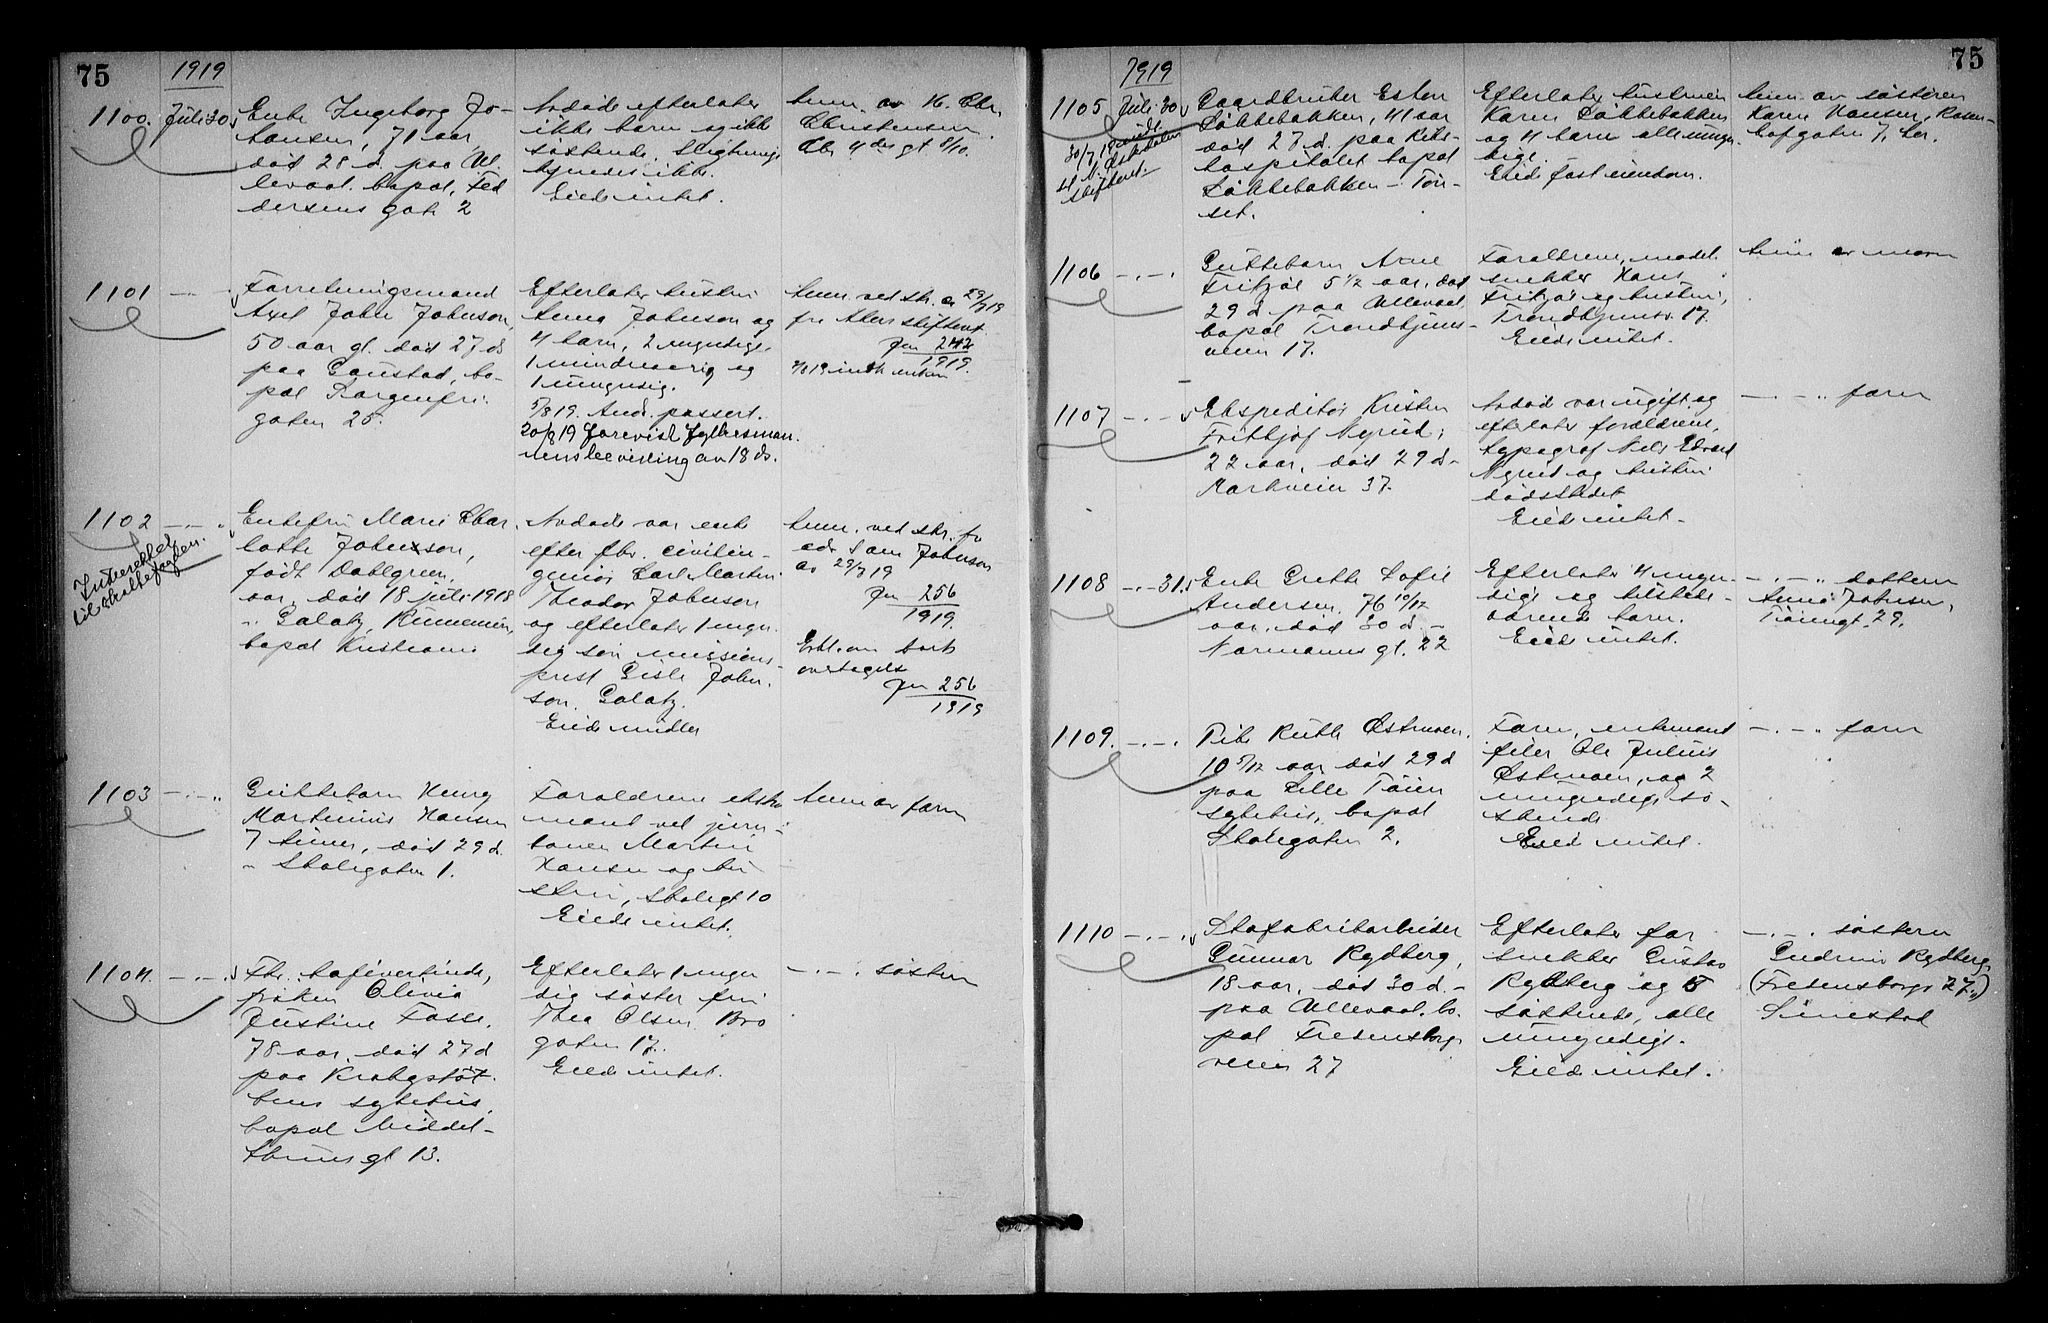 75
1919
1100. Juli 30
Enke Ingeborg Jo-
hansen, 71 aar
død 28 d. paa Ul
levaal. bopal, Fed
dersens gate 2
Avdøde efterlater
ikke barn og ikke
søskende. Slegtninge
kjendes ikke.
Eiede intet.
Anm. av K. Chr.
Christensen
Chr 4des gt 8/10.
1101
Forretningsmand
Axel John Johnson,
50 aar gl. død 27 ds
paa Gaustad, bo-
pal Borgenfri
gaten 25.
Efterlater hustru
Anna Johnson og
4 barn, 2 myndige,
1 mindreaarig og
1 umyndig.
5/8 19. And. passert.
20/8 19 forevist fylkesman
nens bevilling av 18 ds.
Anm. ved skr. av 29/7 19
fra Akers skifteret.
Jnr 242
1919.
1102
Indberettet
til skattefogden.
Enkefru Marie Char
lotte Johnson,
født Dahlgren,
aar, død 18 juli 1918
i Galatz, Rumænien,
bopal Kristiania
Avdøde var enke
efter fhv. civilin-
geniør Carl Martin
Theodor Johnson
og efterlater 1 myn
dig søn missions-
prest Gisle John.
son. Galatz.
Eiede midler
Anm. ved skr. fra
adv Sam Johnson
av 29/7 19
Jnr 256
1919.
Erkl. om boets
overtagelse
Jnr 256
1919
1103
Guttebarn Henry
Martinius Hansen
7 timer, død 29 d.
- Skolegaten 1.
Foraldrene ekstra
mand ved jern-
banen Martin
Hansen og hu
stru, Skolegt 10
Eiede intet.
Anm av farn
1104.
Fhv. kafévertinde,
frøken Olivia
Justine Fosse.
78 aar, død 27 d
paa Krohgstøt
tens sykehus,
bopal Middel-
thuns gt 13.
Efterlater 1 myn
dig søster fru
Thea Olsen Bro
gaten 17.
Eiede intet.
-.-. søstern
75
1919
1105 Juli 30
30/7 19
skifteret.
Gaardbruker Esten
Løkkebakken, 41 aar
død 27 d. paa Riks-
hospitalet bopal
Løkkebakken - Tøn-
set.
Efterlater hustruen
Karen Løkkebakken
og 4 barn alle umyn-
dige.
Eied fast eiendom.
Anm. av søsteren
Karen Hansen, Rosen-
hofgaten 7, her.
1106 -.-.
Guttebarn Arne
Fritzøe 5 1/2 aar, død
29 d paa Ullevaal,
bopal Trondhjems-
veien 17.
Foraldrene, model-
snekker Hans
Fritzøe og hustru,
Trondhjemsv. 17.
Eiede intet.
Anm av morn
1107 -.-
Ekspeditør Kristen
Frithjof Nyrud,
22 aar, død 29 d-
Markveien 37.
Avdød var ugift og
efterlater foræ­ldrene,
typograf Nils Edvard
Nyrud og hustru
dødsstedet
Eied intet.
-.-" farn
1108 -.- 31.
Enke Grethe Sofie
Andersen. 76 10/12
aar, død 30 d. -
Normanns gt. 22
Efterlater 4 myn-
dige og tilstede-
værende barn.
Eiede intet.
-.-" dattern
Anna Johnsen,
Tøiengt. 29.
1109. -.-.
Pike Ruth Østmoen,
10 5/12 aar død 29 d
paa Lille Tøien
sykehus, bopal
Skolegaten 2.
Farn, enkemand
filer Ole Julius
Østmoen, og 2
umyndige sø-
skende
Eied intet.
-.-" farn
1110 -.-.
Skofabrikarbeider
Gunnar Rydberg,
18 aar, død 30 d.-
paa Ullevaal. bo.
pal Fredensborg
veien 27
Efterlater far
snekker Gustav
Rydberg og 5
søskende, alle
umyndige.
Eiede intet.
-.-. søstern
Gudrun Rydberg,
(Fredensborgv 27.)